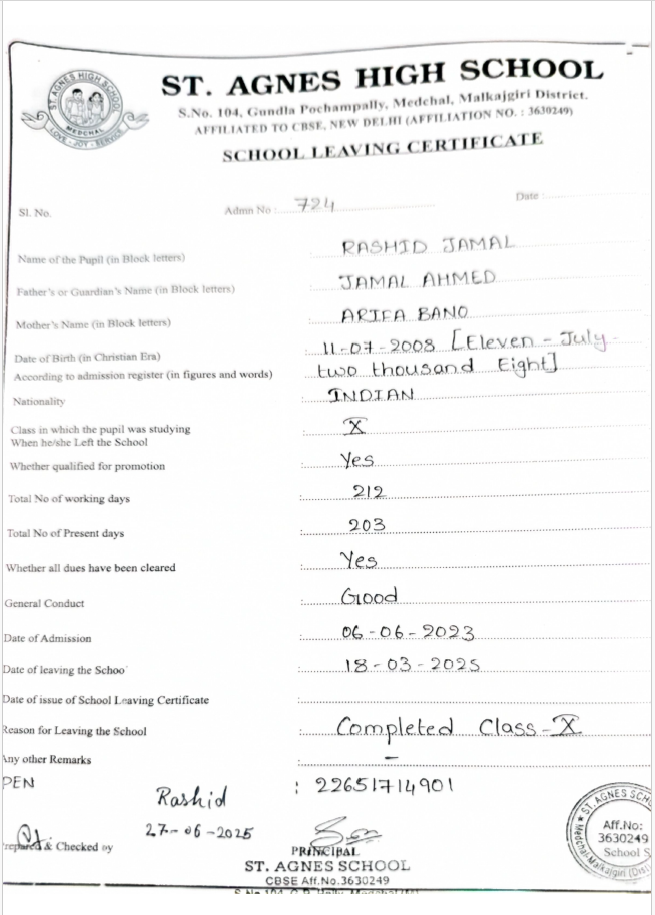 ST. AGNES HIGH SCHOOL
MEDCHAL
LOVE - JOY - SERVICE
ST. AGNES HIGH SCHOOL
S.No. 104, Gundla Pochampally, Medchal, Malkajgiri District.
AFFILIATED TO CBSE, NEW DELHI (AFFILIATION NO. : 3630249)
SCHOOL LEAVING CERTIFICATE
Sl. No. Admn No : 724 Date :
Name of the Pupil (in Block letters) : RASHID JAMAL
Father's or Guardian's Name (in Block letters) : JAMAL AHMED
Mother's Name (in Block letters) : ARIFA BANO
Date of Birth (in Christian Era) : 11-07-2008 [Eleven - July -
According to admission register (in figures and words) two thousand Eight]
Nationality : INDIAN
Class in which the pupil was studying : X
When he/she Left the School
Whether qualified for promotion : Yes
Total No of working days : 212
Total No of Present days : 203
Whether all dues have been cleared : Yes
General Conduct : Good
Date of Admission : 06-06-2023
Date of leaving the Schoo : 18-03-2025
Date of issue of School Leaving Certificate :
Reason for Leaving the School : Completed Class-X
Any other Remarks : -
PEN : 22651714901
Rashid
27-06-2025
Prepared & Checked by
PRINCIPAL
ST. AGNES SCHOOL
CBSE Aff.No.3630249
ST. AGNES SCH
Aff.No:
3630249
School S
Medchal-Malkajgiri (Dist